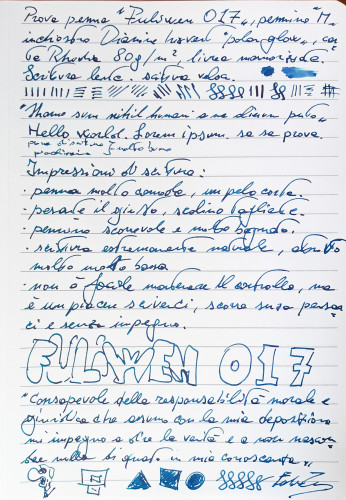 Prova penna "Fuliwen 017", pennino "M"
inchiostro Diamine Haven "polar glow", car
ta Rhodia 80g/m², linea manoscritta.
Scrittura lenta. scrittura veloce.
"Homo sum nihil humani a me alienum puto"
Hello World. Lorem ipsum. sa sa prova.
prova di scrittura
Impressioni di scrittura:
· penna molto comoda, un pelo corta.
· pesante il giusto, scalino tagliente.
· pennino scorrevole e molto bagnato.
· scrittura estremamente naturale, attrito
molto molto basso
· non è facile mantenere il controllo, ma
è un piacere scriverci, scorre senza pensar
ci e senza impegno.
FULIWEN 017
"Consapevole della responsabilità morale e
giuridica che assumo con la mia deposizione
mi impegno a dire la verità e a non nascon
dere nulla di quanto è a mia conoscenza".